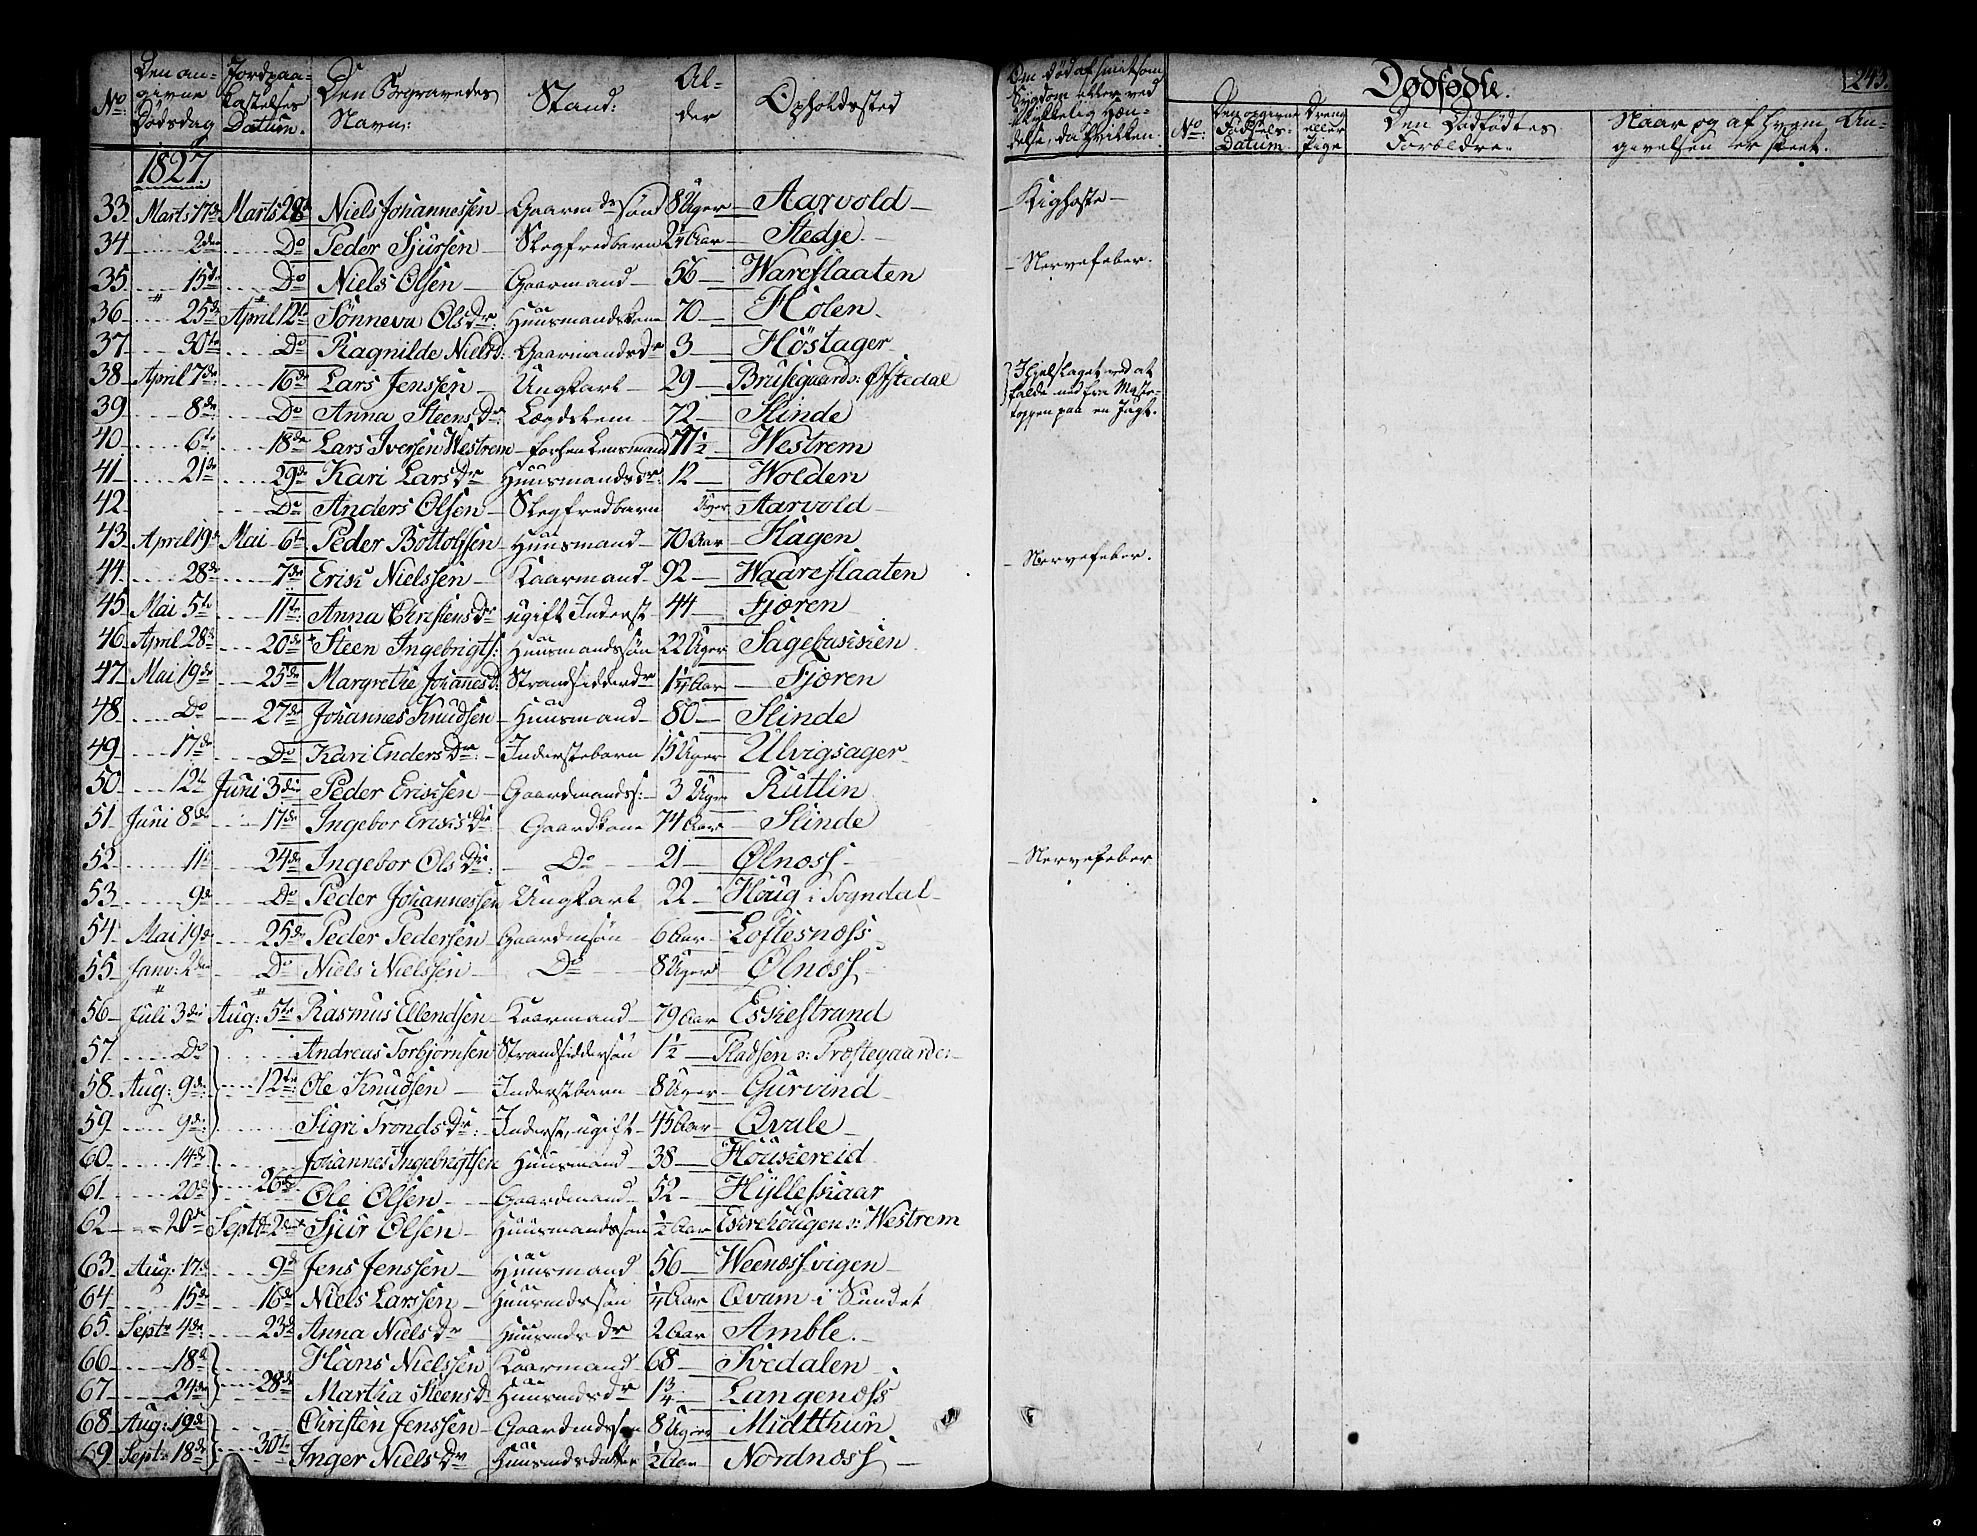 No: | Den angivne Dødsdag | Jordpaakastelses Dattum. | Den Begravedes Navn: | Stand: | Alder | Opholdsted | Om død af smitsom Sygdom eller ved ulykkelig Hændelse, da hvilken.
1827.
33 Marts 17de Marts 28de Niels Johannessen – Gaarmds sön 8 Uger – Aarvold – Kighoste –
34 2den Do Peder Sjursen – Slegfredbarn 2¼ Aar – Stedje –
35 15de Do Niels Olsen – Gaarmand – 56 – Wareflaaten – Nervefeber.
36 25de April 12te Sönneva Olsdr: Huusmandskone 70 – Holen.
37 30te Do Ragnilde Nielsd: Gaarmandsdr 3 – Höstager
38 April 7de 16de Lars Jenssen – Ungkarl – 29 – Brusegaard v: Øfstedal } Ihjelslaget ved at falde ned fra Mastetoppen paa en Jagt.
39 8de Do Anna Steensdr Lægdslem – 72 – Slinde
40 6te 18de Lars Iversen Westrem – forhen Lensmand 77½ – Westrem
41 21de 29de Kari Larsdr Huusmandsdr: 12 – Wolden
42 Do Anders Olsen – Slegfredbarn Uger Aarvold –
43 April 19de Mai 6te Peder Bottolfsen – Huusmand – 70 Aar – Hagen – Nervefeber.
44 28de 7de Erik Nielssen – Kaarmand – 92 – Waareflaaten
45 Mai 5te 11te Anna Christensdr ugift Inderst 44 – Fjæren
46 April 28de 20de Steen Ingebrigts: Huusmandssön 22 Uger – Sagebakken
47 Mai 19de 25de Margrethe Johannesd: Strandsidderdr 1¼ Aar – Fjæren
48 Do 27de Johannes Knudsen – Huusmand – 80 – Slinde
49 17de Do Kari Endersdr: – Inderstebarn 15 Uger – Ulvigsager
50 12te Juni 3die Peder Eriksen – Gaardmandss: – 3 Uger Rutlin
51 Juni 8de 17de Ingebor Eriksdr Gaardkone 74 Aar – Slinde
52 11te 24de Ingebor Olsdr: – Do – 21 – Ølnæss – Nervefeber
53 9de Do Peder Johannessen Ungkarl 22 – Houg i Sogndal –
54 Mai 19de 25de Peder Pedersen – Gaardmsön – 6 Aar – Loftesnæss
55 Janv: 2den Do Niels Nielssen – Do 8 Uger Ølnæss –
56 Juli 3die Aug: 5te Rasmus Ellendsen – Kaarmand – 79 Aar Eskestrand
57 Do Andreas Torbjörnsen Strandsiddersön 1½ – Pladsen v: Præstegaarden
58 Aug: 9de 12te Ole Knudsen – Inderstbarn 8 Uger – Gurvind –
59 9de Sigri Trondsdr: Inderst, ugift – 45 Aar – Qvale –
60 14de Johannes Ingebrigtsen Huusmand – 38 – Houkereid
61 20de 26de Ole Olsen – Gaardmand – 52 – Hylleskaar
62 20de Septr 2den Sjur Olsen – Huusmandssön ½ Aar Eskehougen v: Westrem
63 Aug: 17de 9de Jens Jenssen – Huusmand 56 – Weenæssvigen
64 15de 16de Niels Larssen – Huusmdssön ¼ Aar – Qvam i Sundet
65 Septr 4de 23de Anna Nielsdr – Huusmdsdr 2 Aar – Amble. –
66 18de Hans Nielssen Kaarmand – 68 – Tvedalen
67 24de 28de Martha Steensd: Huusmdsdr 1¾ – Langenæss
68 Aug: 19de Christen Jenssen – Gaardmdssön 8 Uger – Midtthun.
69 Septr 18de 30te Inger Nielsdr Huusmdsdatter ½ Aar – Nordnæss –
– Nervefeber
Dødfødte.
243.
No: | Den opgivne Fødsels-Datum | Dreng eller Pige | Den Dødfødtes Forældre. | Naar og af hvem Angivelsen er skeet.